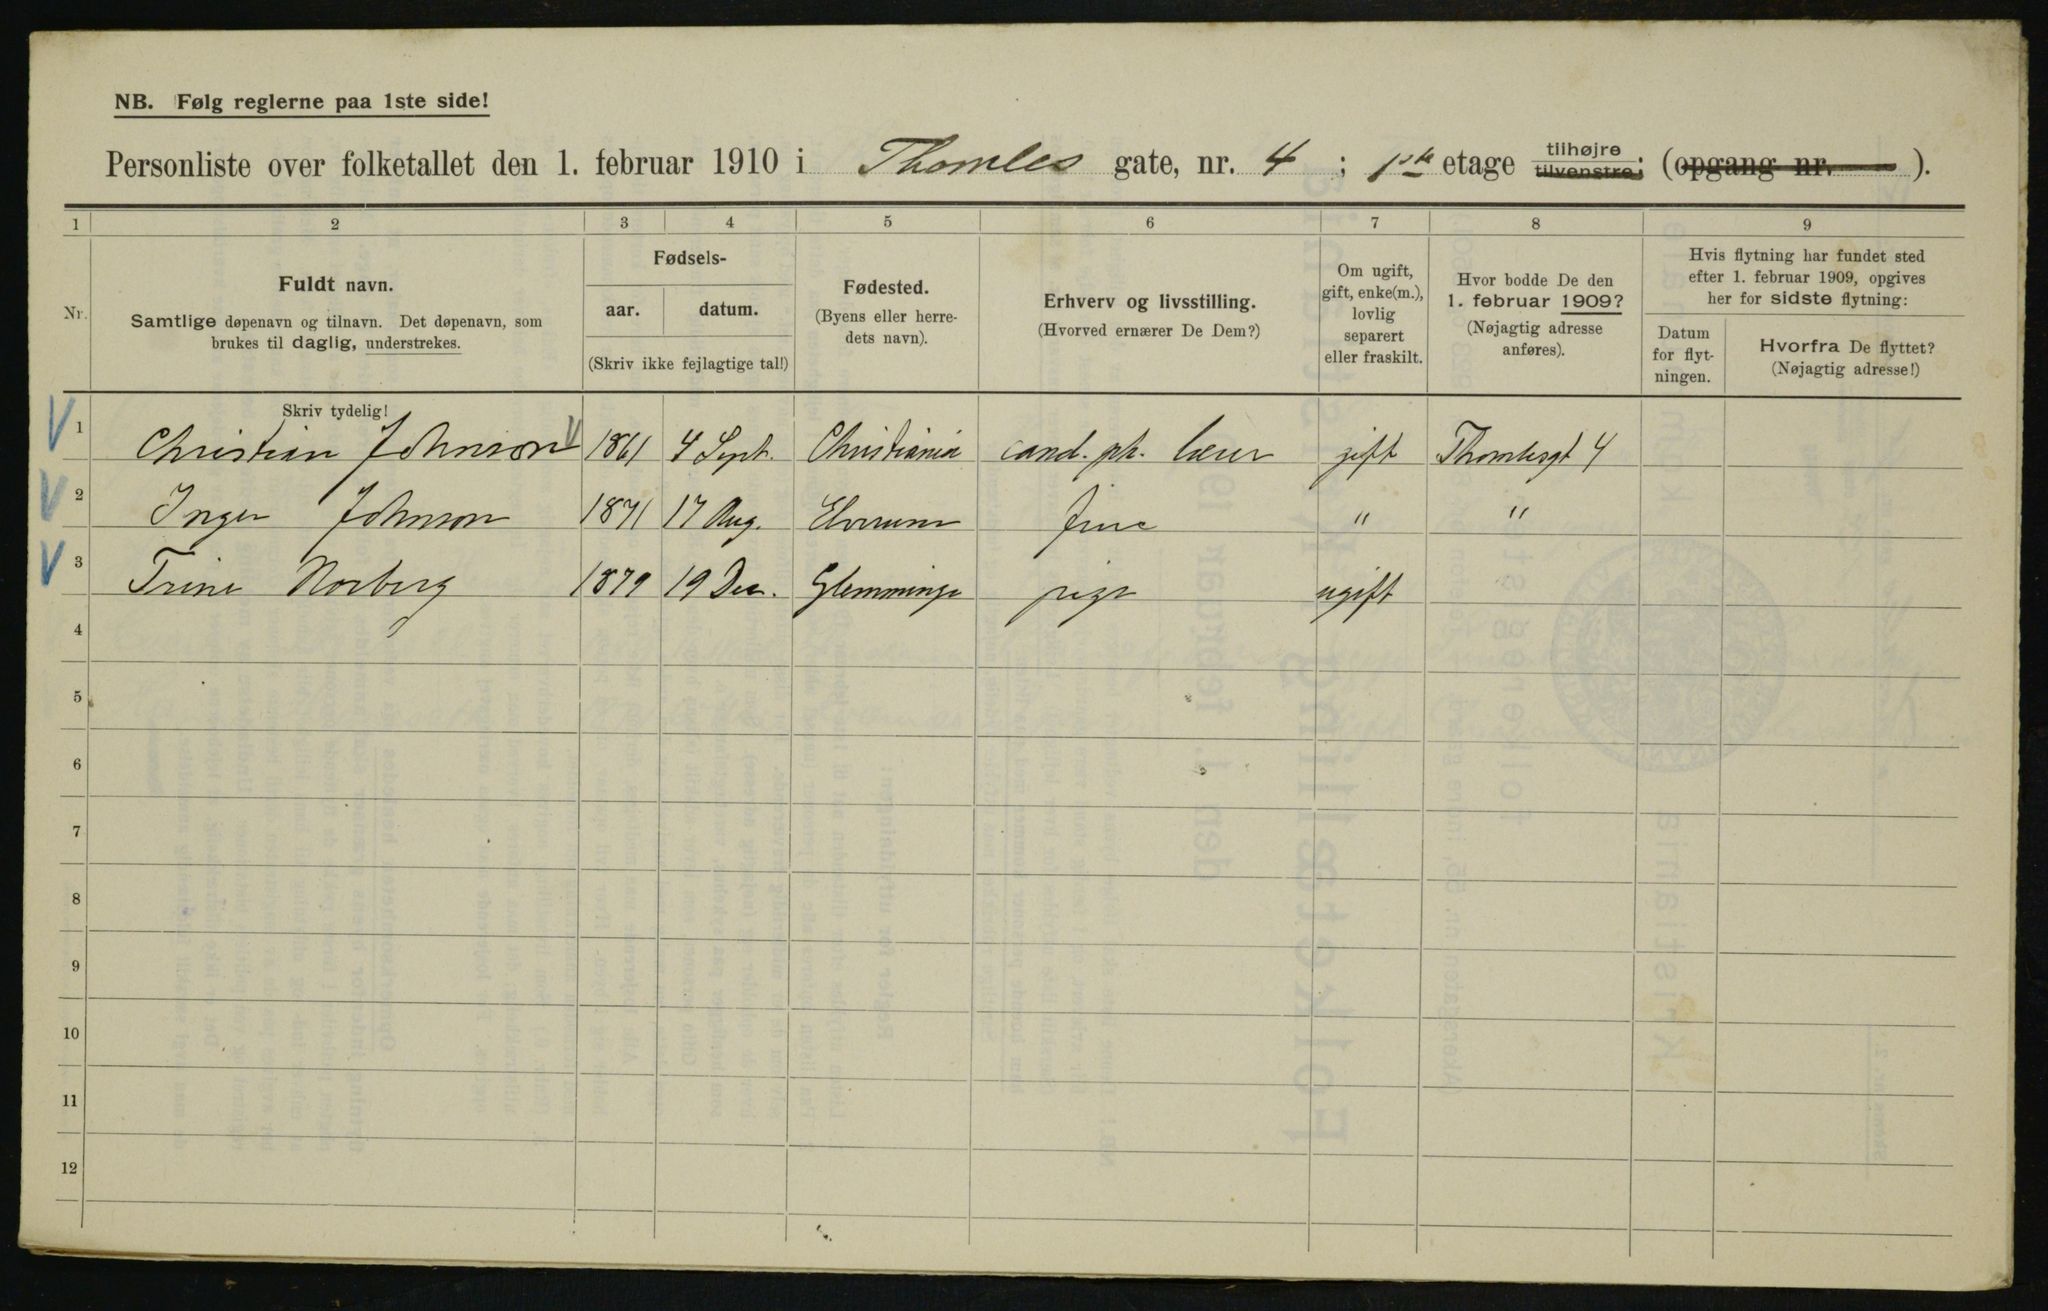 NB. Følg reglerne paa 1ste side!
Personliste over folketallet den 1. februar 1910 i Thomles gate, nr. 4 ; 1ste etage tilhøjre tilvenstre; (opgang nr. ).
1 2 3 4 5 6 7 8 9
Nr.
Fuldt navn.
Samtlige døpenavn og tilnavn. Det døpenavn, som
brukes til daglig, understrekes.
Fødsels-
aar. datum.
(Skriv ikke fejlagtige tal!)
Fødested.
(Byens eller herre-
dets navn).
Erhverv og livsstilling.
(Hvorved ernærer De Dem?)
Om ugift,
gift, enke(m.),
lovlig
separert
eller fraskilt.
Hvor bodde De den
1. februar 1909?
(Nøjagtig adresse
anføres).
Hvis flytning har fundet sted
efter 1. februar 1909, opgives
her for sidste flytning:
Datum
for flyt-
ningen.
Hvorfra De flyttet?
(Nøjagtig adresse!)
Skriv tydelig!
1 Christian Johnson 1861 4 Sept. Christiania cand. ph. lærer gift Thomlesgt 4
2 Inger Johnson 1871 17 Aug. Elverum frue " "
3 Trine Norberg 1879 19 Dec. Glemminge pige ugift
4
5
6
7
8
9
10
11
12